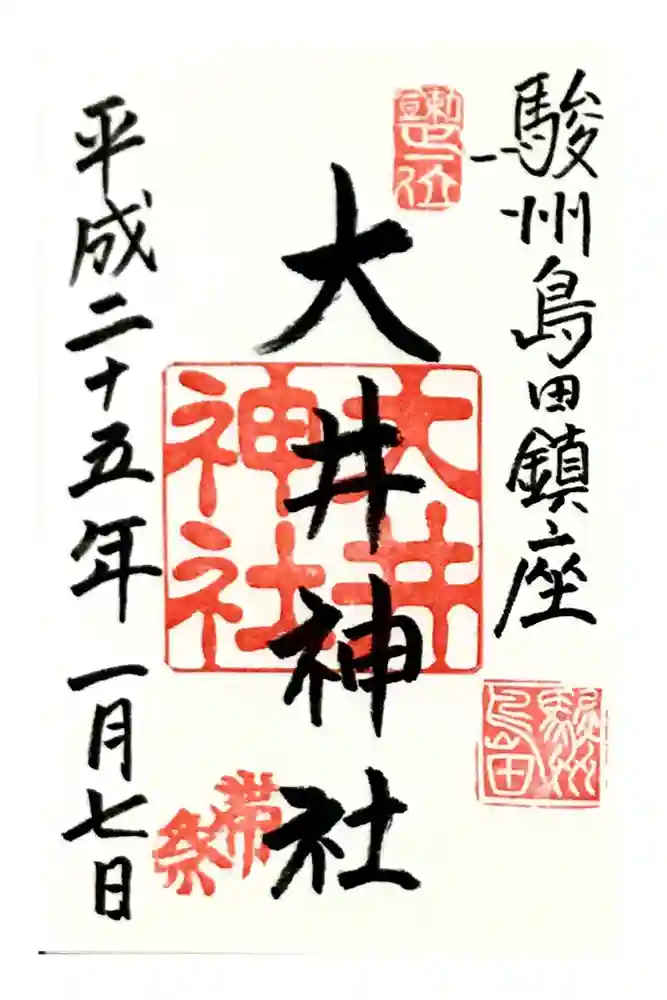 駿州島田鎮座
駿州
島田
勅宣
正一位
大井神社
大井
神社
帯
祭
平成二十五年一月七日